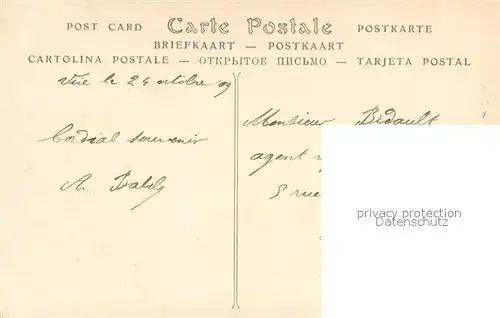 POST CARD Carte Postale POSTKARTE
BRIEFKAART — POSTKAART
CARTOLINA POSTALE — ОТКРЫТОЕ ПИСЬМО — TARJETA POSTAL
le 24 octobre 09
Cordial souvenir
A.
Monsieur Bidault
agent
5 rue
privacy protection
oldthing.com